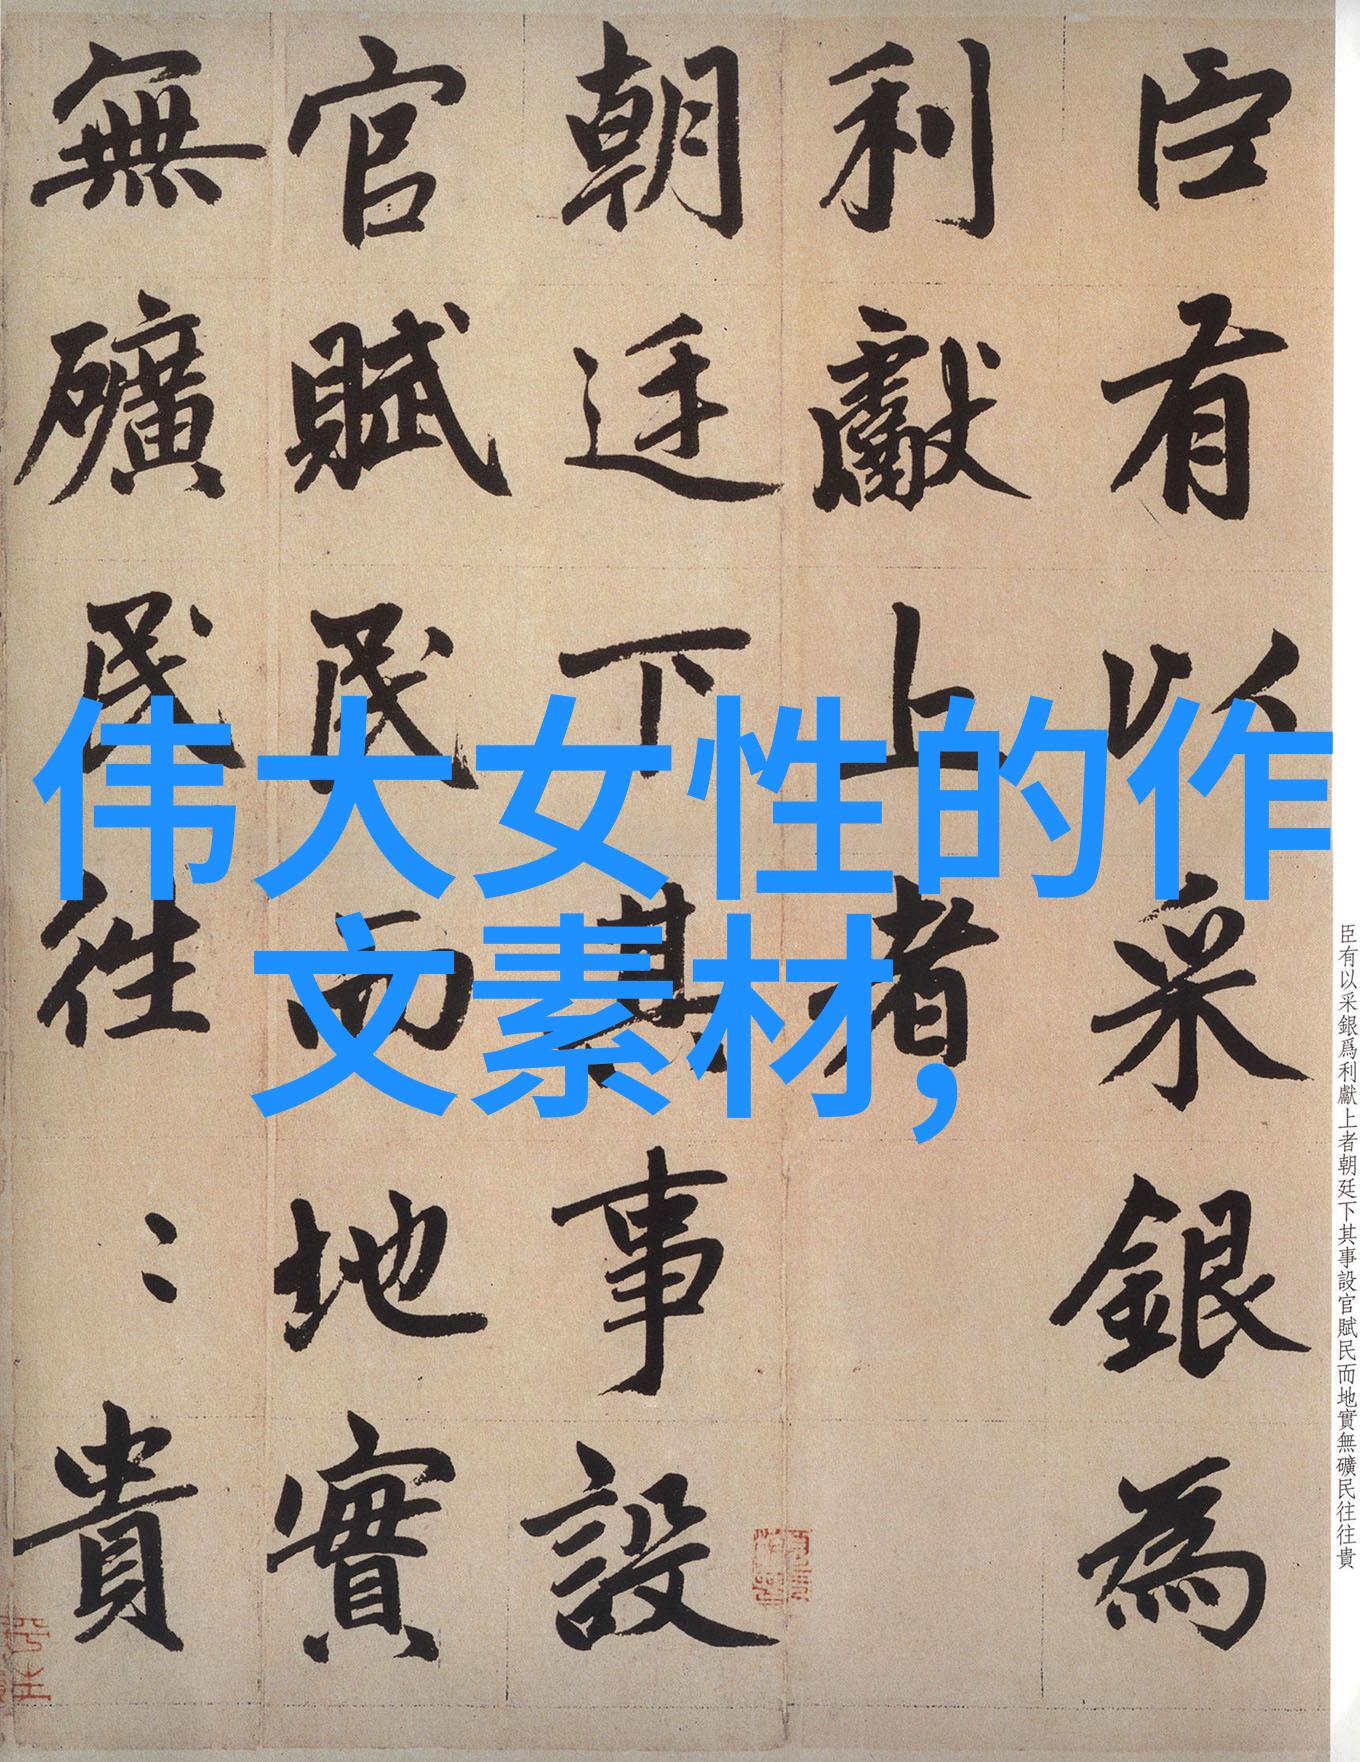 臣有以采銀為
利獻上者
朝廷下其事設
官賦民而地實
無礦民往〻貴
伟大女性的作
文素材,
臣有以采銀爲利獻上者朝廷下其事設官賦民而地實無礦民往往貴